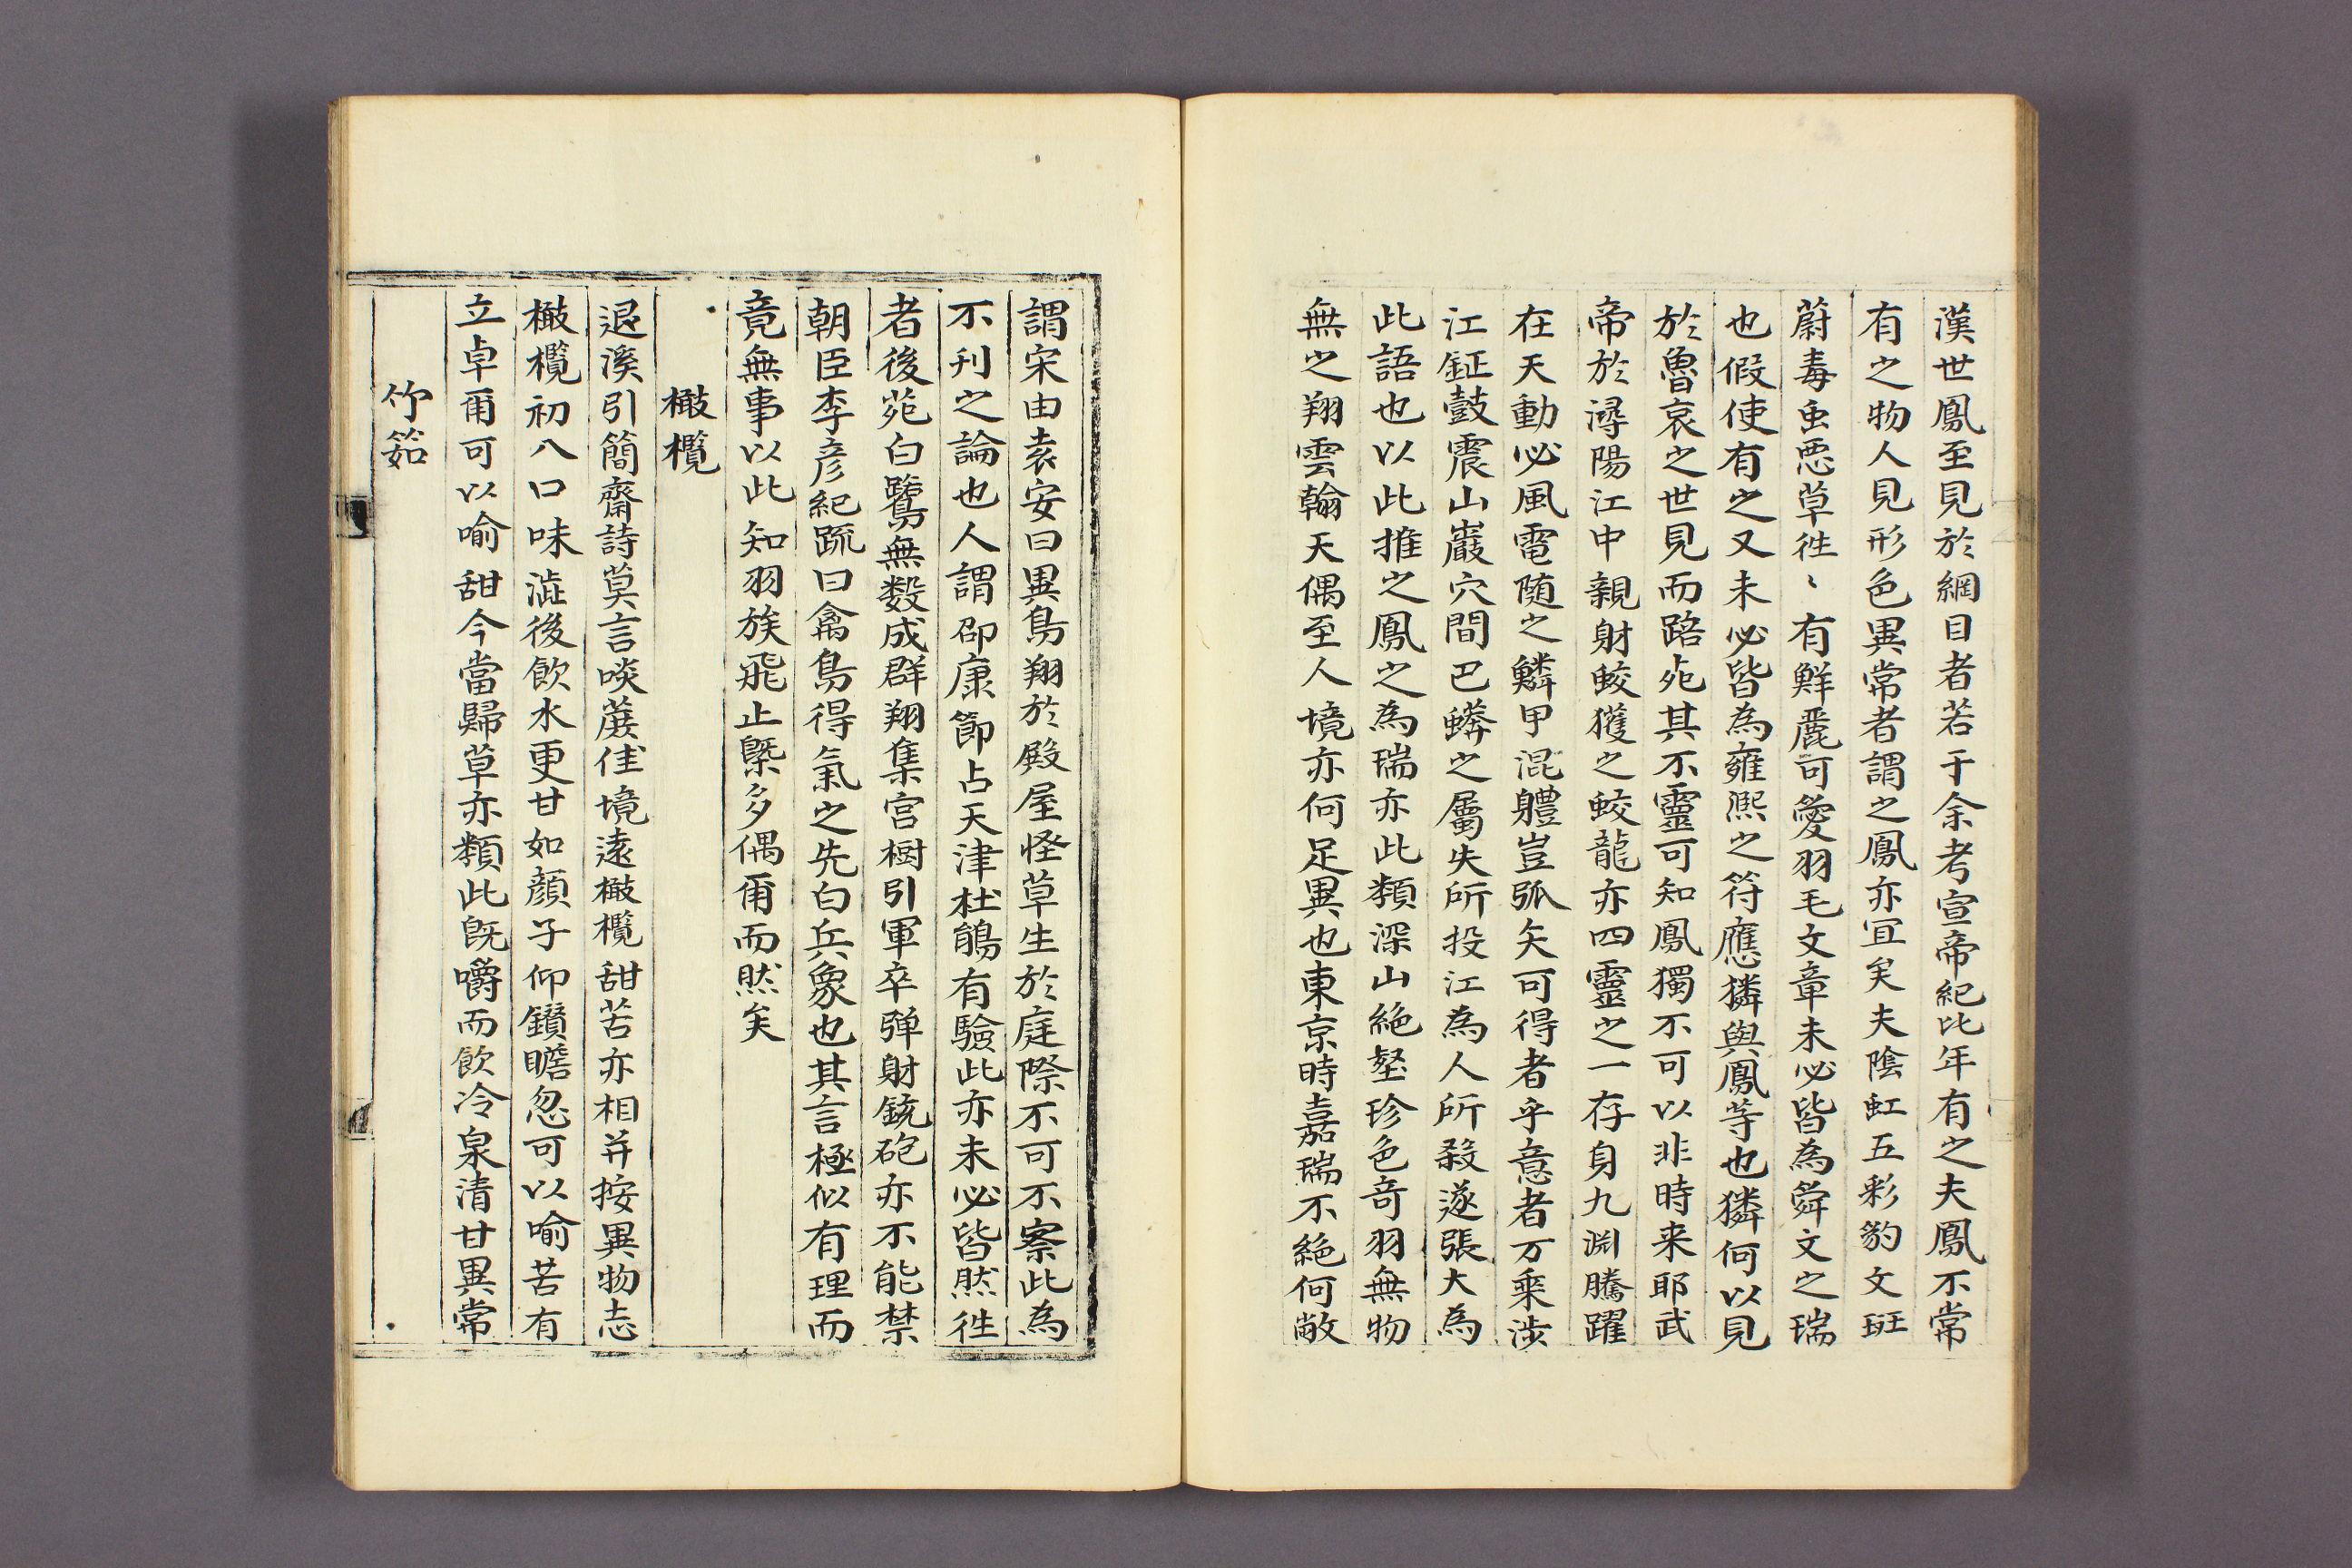 漢世鳳至見於綱目者若干余考宣帝紀比年有之夫鳳不常
有之物人見形色異常者謂之鳳亦冝矣夫陰虹五彩豹文斑
蔚毒虫悪草徃〻有鮮麗可愛羽毛文章未必皆為舜文之瑞
也假使有之又未必皆為雍熙之符應獜與鳳等也獜何以見
於魯哀之世見而踣死其不靈可知鳳獨不可以非時来耶武
帝於潯陽江中親射蛟獲之蛟龍亦四靈之一存身九淵騰躍
在天動必風電随之鱗甲混軆豈弧矢可得者乎意者万乘渉
江鉦鼓震山巖穴間巴蟒之屬失所投江為人所殺遂張大為
此語也以此推之鳳之為瑞亦此類深山絶壑珍色竒羽無物
無之翔雲翰天偶至人境亦何足異也東京時嘉瑞不絶何敞
謂宋由袁安曰異鳥翔於殿屋怪草生於庭際不可不察此為
不刋之論也人謂邵康節占天津杜鵑有驗此亦未必皆然徃
者後苑白鷺無数成群翔集宮樹引軍卒弾射銃砲亦不能禁
朝臣李彦紀䟽曰禽鳥得氣之先白兵象也其言極似有理而
竟無事以此知羽族飛止槩多偶爾而然矣
橄欖
退溪引簡齋詩莫言啖蔗佳境遠橄欖甜苦亦相并按異物志
橄欖初八口味澁後飲水更甘如顔子仰鑚瞻忽可以喻苦有
立卓爾可以喻甜今當歸草亦類此旣嚼而飲冷泉清甘異常
竹筎